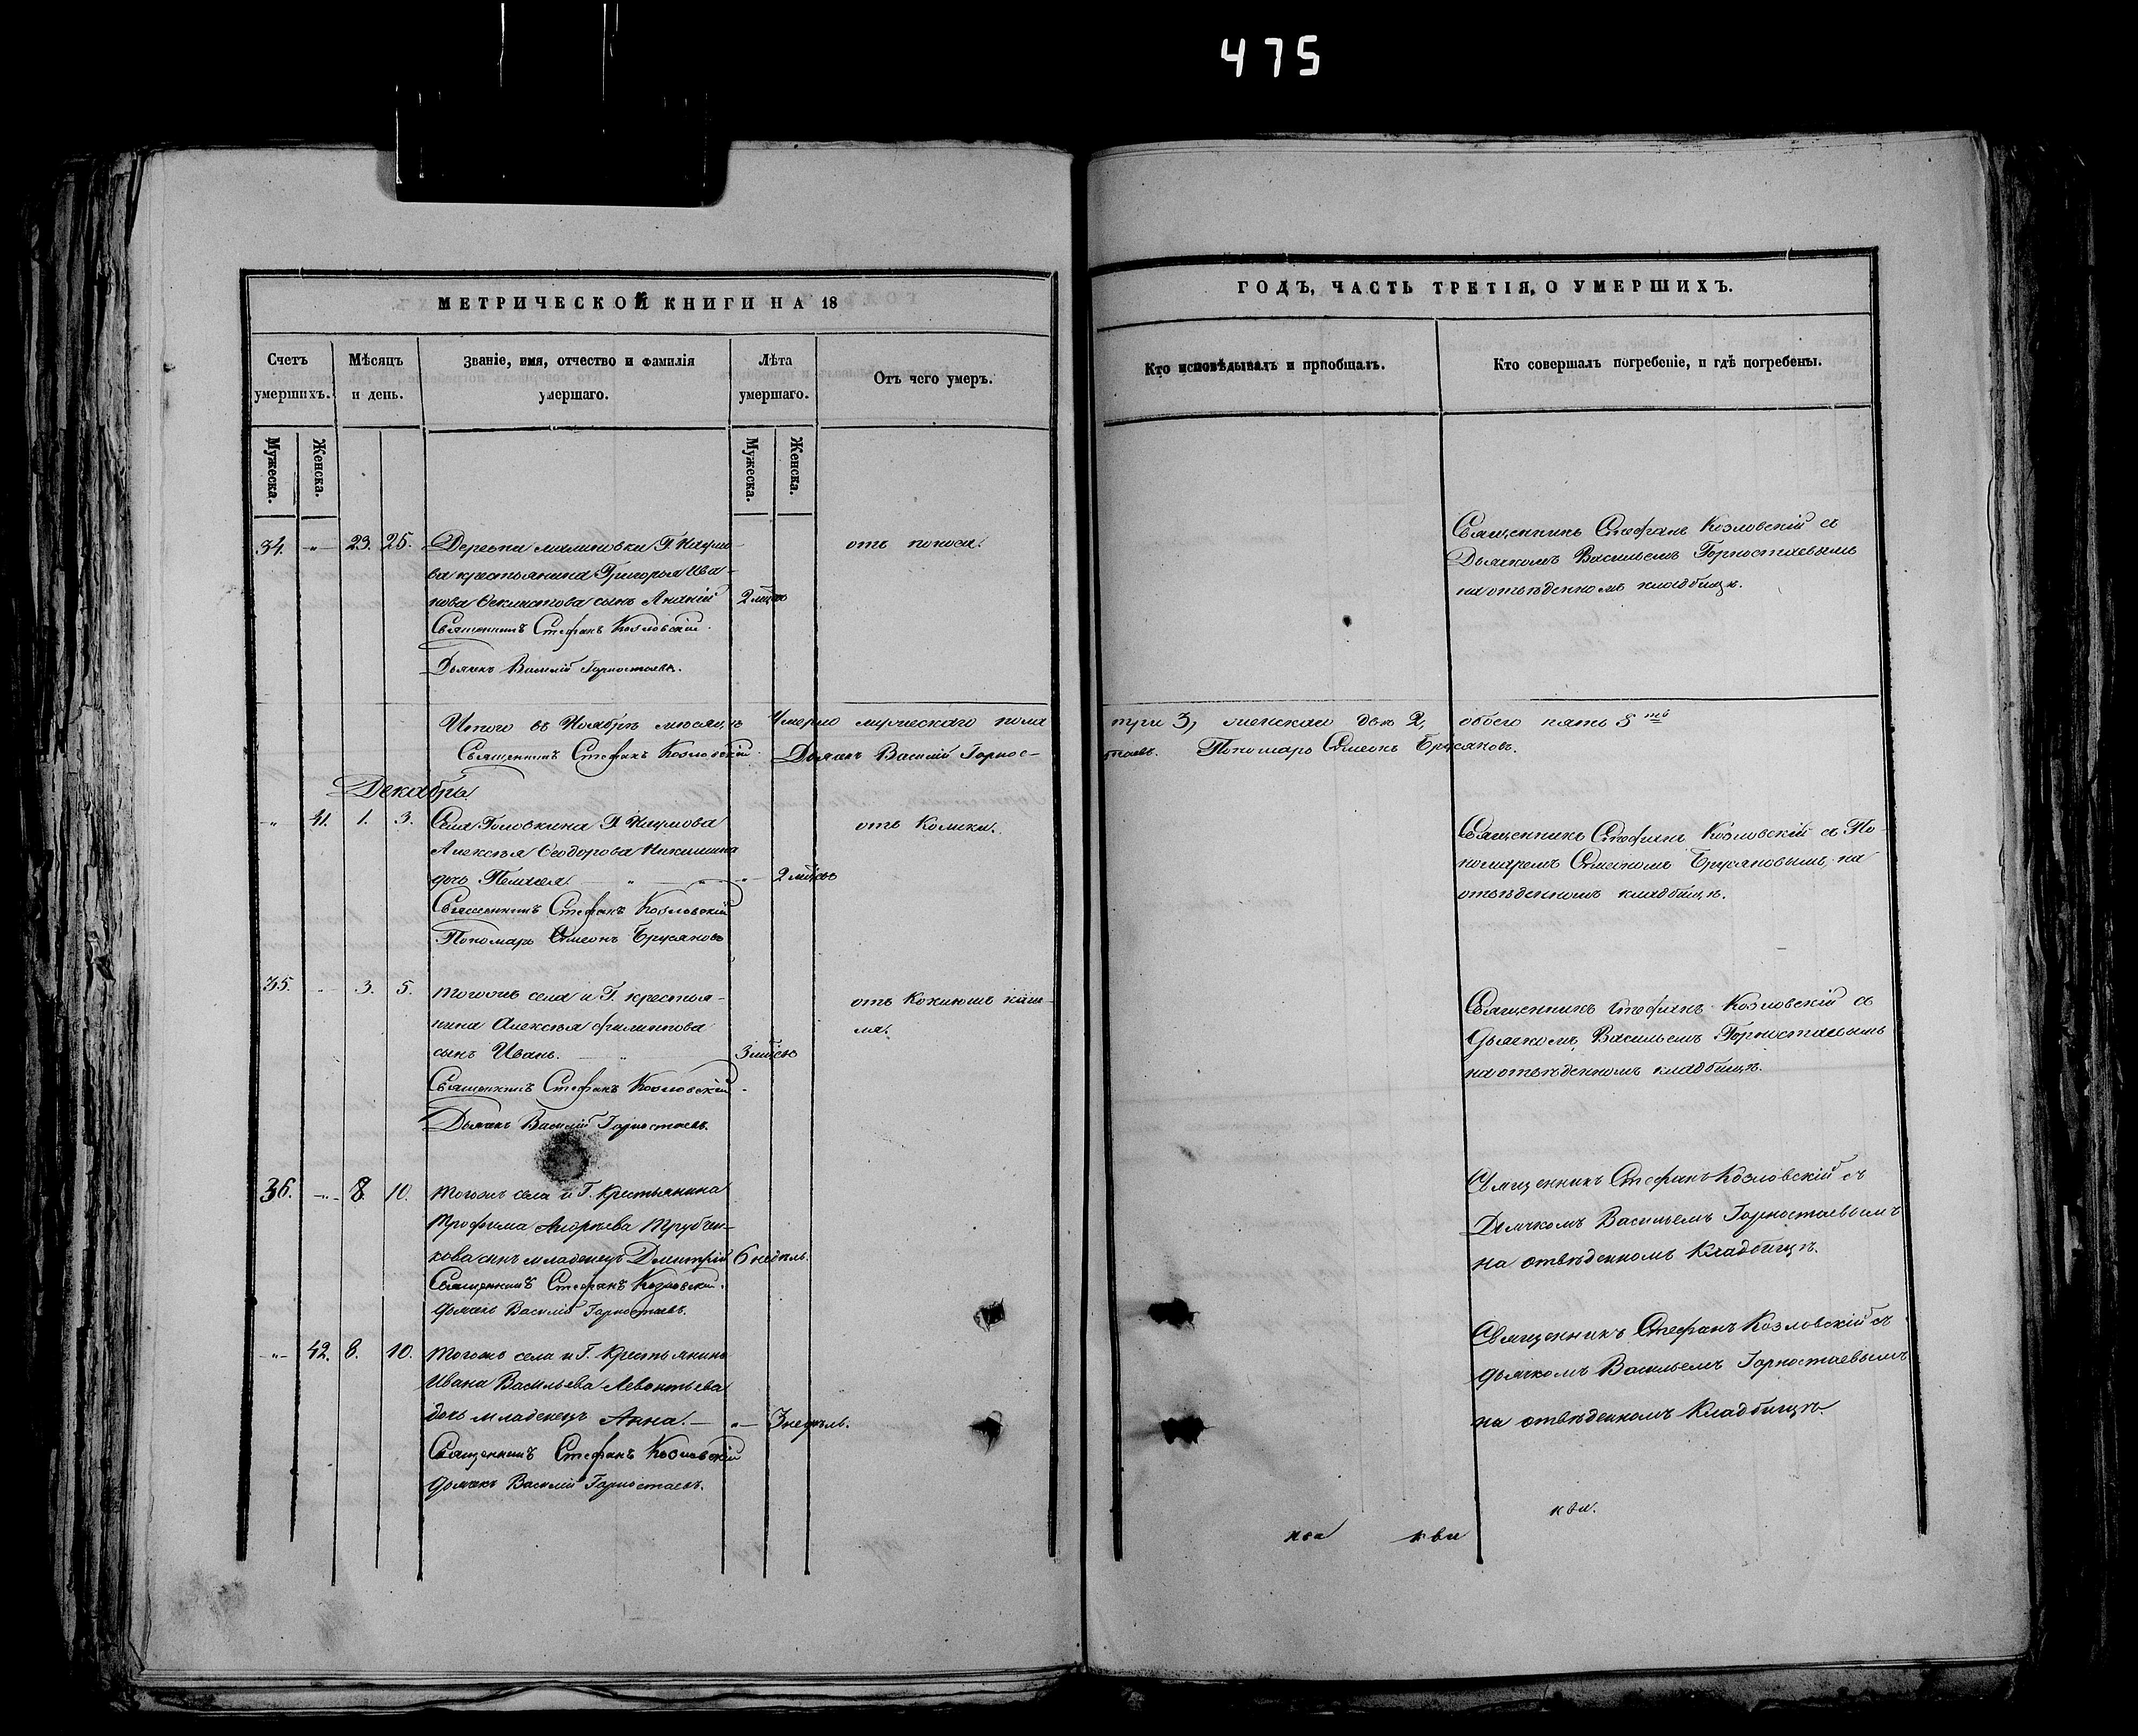 475
МЕТРИЧЕСКОЙ КНИГИ НА 18
Счетъ умершихъ.
Мѣсяцъ и день.
Званіе, имя, отчество и фамилія умершаго.
Лѣта умершаго.
Отъ чего умеръ.
Мужеска.
Женска.
Мужеска.
Женска.
34. -"- 23. 25. Деревни Малиновки Г.
крестьянина Григорья Ива-
нова Феклистова сынъ Ананій 2 мѣся отъ поноса.
Священникъ Стефанъ Козловскій.
Дьячекъ Василій Горностаевъ.
Итого въ Ноябрѣ мѣсяцѣ Умерло мужескаго пола
Священникъ Стефанъ Козловскій. Дьячекъ Василій Горнос-
Декабрь
-"- 41. 1. 3. Села Головкина Г. Наумова
Алексѣя Феодорова Никишина отъ Колики.
дочь Пелагея. 2 мѣсяц
Священникъ Стефанъ Козловскій
Пономарь Симеонъ Брусяновъ
35. 3. 5. Тогожъ села и Г. крестья-
нина Алексѣя Филиппова отъ каш-
сынъ Иванъ. 3 мѣсяц ля.
Священникъ Стефанъ Козловскій.
Дьячекъ Василій Горностаевъ.
36. -"- 8 10. Тогожъ села и Г. Крестьянина
Трофима Андреева Трубчен-
кова сынъ младенецъ Димитрій 6 недѣль.
Священникъ Стефанъ Козловскій.
Дьячекъ Василій Горностаевъ.
-"- 42. 8. 10. Тогожъ села и Г. Крестьянина
Ивана Васильева Левонтьева
дочь младенецъ Анна. -"- 3 недѣль.
Священникъ Стефанъ Козловскій
Дьячекъ Василій Горностаевъ.
ГОДЪ, ЧАСТЬ ТРЕТІЯ, О УМЕРШИХЪ.
Кто исповѣдывалъ и пріобщалъ.
Кто совершалъ погребеніе, и гдѣ погребены.
Священникъ Стефанъ Козловскій съ
Дьячкомъ Васильемъ Горностаевымъ
на отвѣденномъ кладбищѣ.
три 3, женскаго двѣ 2, обоего пять 5 ть
таевъ. Пономарь Симеонъ Брусяновъ.
Священникъ Стефанъ Козловскій съ По-
номаремъ Симеономъ Брусяновымъ, на
отвѣденномъ кладбищѣ.
Священникъ Стефанъ Козловскій съ
Дьячкомъ Васильемъ Горностаевымъ
на отвѣденномъ кладбищѣ.
Священникъ Стефанъ Козловскій съ
Дьячкомъ Васильемъ Горностаевымъ
на отвѣденномъ Кладбищѣ.
Священникъ Стефанъ Козловскій съ
Дьячкомъ Васильемъ Горностаевымъ
на отвѣденномъ Кладбищѣ.